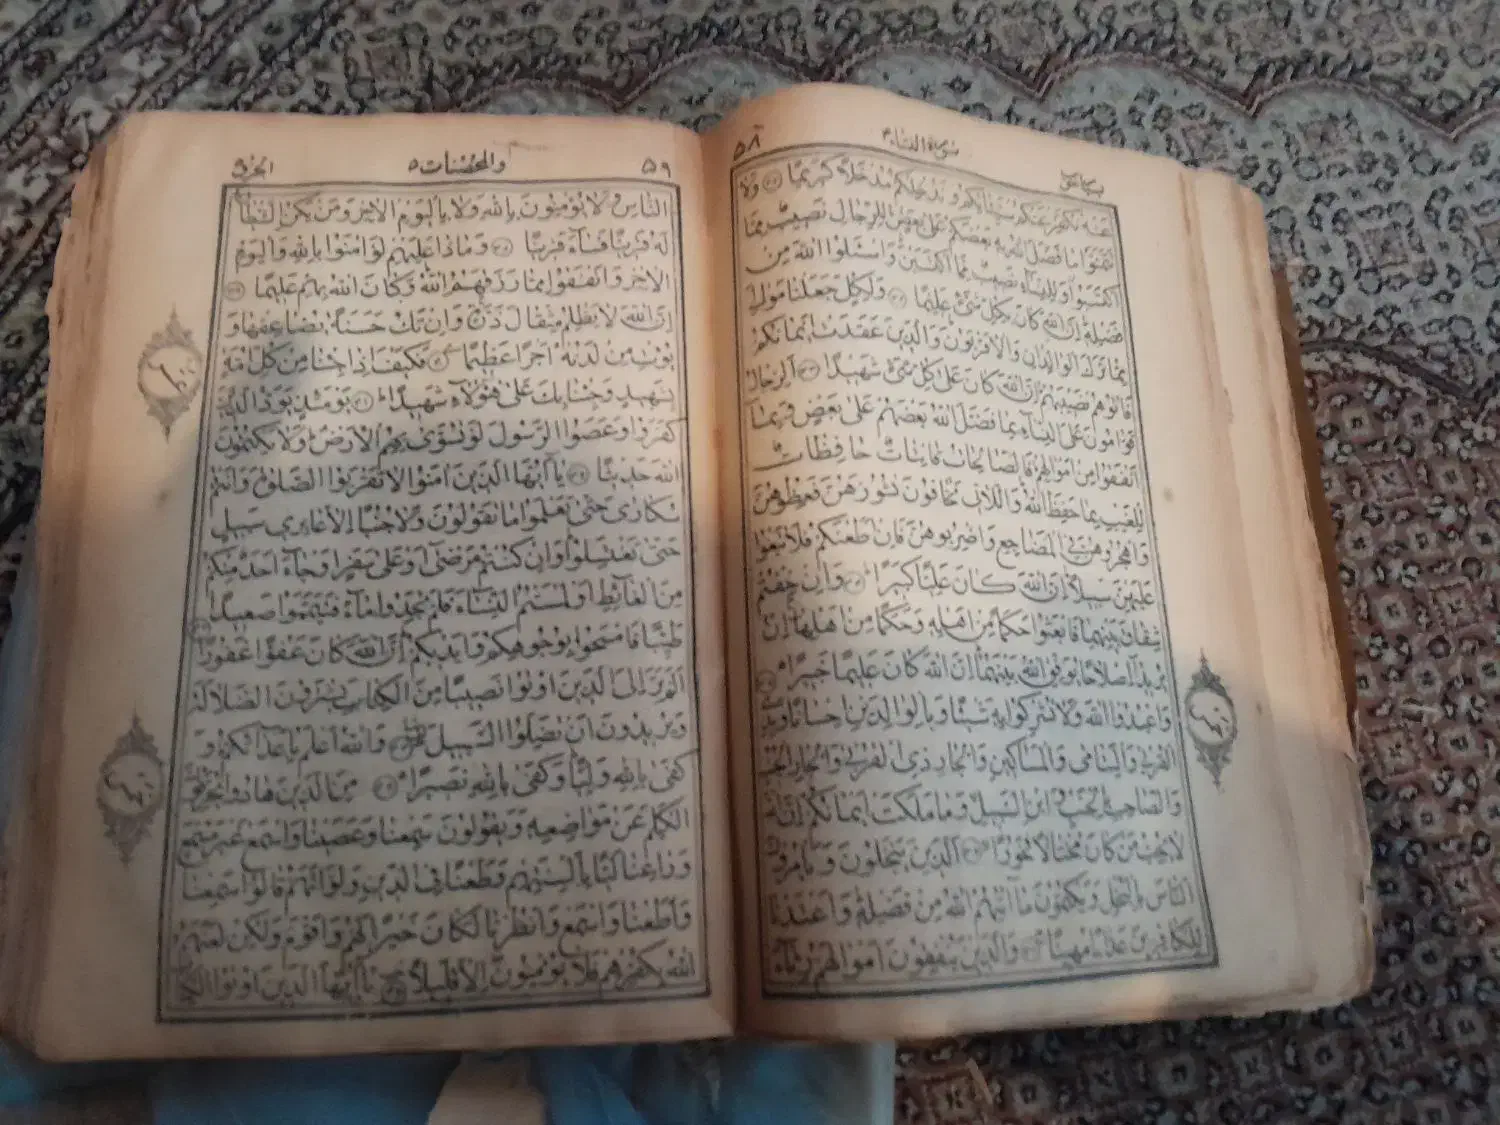 سورة النساء ۴
۵۸
عنه نكفر عنكم سيئاتكم و ندخلكم مدخلا كريما ولا
تتمنوا ما فضل الله به بعضكم على بعض للرجال نصيب مما
اكتسبوا وللنسآء نصيب مما اكتسبن واسئلوا الله من
فضله ان الله كان بكل شئ عليما ولكل جعلنا موالى
مما ترك الوالدان والاقربون والذين عقدت ايمانكم
فاتوهم نصيبهم ان الله كان على كل شئ شهيدا الرجال
قوامون على النسآء بما فضل الله بعضهم على بعض وبما
انفقوا من اموالهم فالصالحات قانتات حافظات
للغيب بما حفظ الله واللاتى تخافون نشوزهن فعظوهن
واهجروهن فى المضاجع واضربوهن فان اطعنكم فلا تبغوا
عليهن سبيلا ان الله كان عليا كبيرا وان خفتم
شقاق بينهما فابعثوا حكما من اهله وحكما من اهلها ان
يريدا اصلاحا يوفق الله بينهما ان الله كان عليما خبيرا
واعبدوا الله ولا تشركوا به شيئا وبالوالدين احسانا وبذى
القربى واليتامى والمساكين والجار ذى القربى والجار الجنب
والصاحب بالجنب وابن السبيل وما ملكت ايمانكم ان الله
لا يحب من كان مختالا فخورا الذين يبخلون ويأمرون
الناس بالبخل ويكتمون ما آتيهم الله من فضله واعتدنا
للكافرين عذابا مهينا والذين ينفقون اموالهم رئآء
۵۹
والمحصنات ۵
الجزء
الناس ولا يؤمنون بالله ولا باليوم الاخر ومن يكن الشيطان
له قرينا فسآء قرينا وماذا عليهم لو امنوا بالله واليوم
الاخر وانفقوا مما رزقهم الله وكان الله بهم عليما
ان الله لا يظلم مثقال ذرة وان تك حسنة يضاعفها و
يؤت من لدنه اجرا عظيما فكيف اذا جئنا من كل امة
بشهيد وجئنا بك على هؤلآء شهيدا يومئذ يود الذين
كفروا وعصوا الرسول لو تسوى بهم الارض ولا يكتمون
الله حديثا يا ايها الذين امنوا لا تقربوا الصلوة وانتم
سكارى حتى تعلموا ما تقولون ولا جنبا الا عابرى سبيل
حتى تغتسلوا وان كنتم مرضى او على سفر او جآء احد منكم
من الغآئط او لمستم النسآء فلم تجدوا مآء فتيمموا صعيدا
طيبا فامسحوا بوجوهكم وايديكم ان الله كان عفوا غفورا
الم تر الى الذين اوتوا نصيبا من الكتاب يشترون الضلالة
ويريدون ان تضلوا السبيل والله اعلم باعدائكم و
كفى بالله وليا وكفى بالله نصيرا من الذين هادوا يحرفون
الكلم عن مواضعه ويقولون سمعنا وعصينا واسمع غير مسمع
وراعنا ليا بالسنتهم وطعنا فى الدين ولو انهم قالوا سمعنا
واطعنا واسمع وانظرنا لكان خيرا لهم واقوم ولكن لعنهم
الله بكفرهم فلا يؤمنون الا قليلا يا ايها الذين اوتوا الكتاب